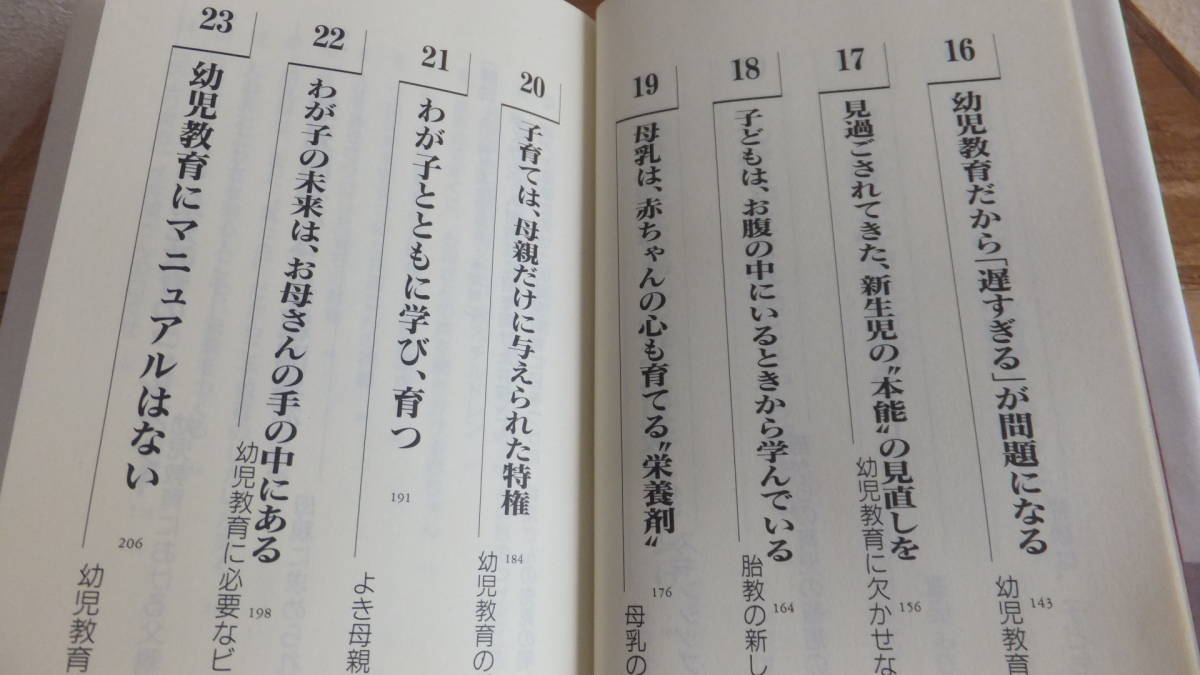 16
幼児教育だから「遅すぎる」が問題になる
143
幼児教育
17
見過ごされてきた、新生児の〝本能〟の見直しを
156
幼児教育に欠かせな
18
子どもは、お腹の中にいるときから学んでいる
164
胎教の新し
19
母乳は、赤ちゃんの心も育てる〝栄養剤〟
176
母乳の
20
子育ては、母親だけに与えられた特権
184
幼児教育の
21
わが子とともに学び、育つ
191
よき母親
22
わが子の未来は、お母さんの手の中にある
198
幼児教育に必要なビ
23
幼児教育にマニュアルはない
206
幼児教育